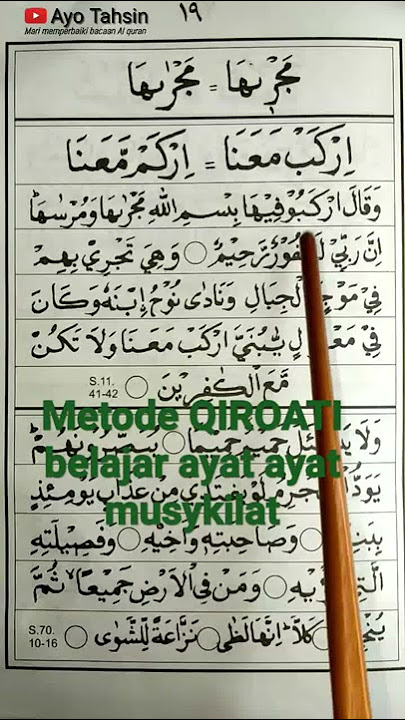 Ayo Tahsin
Mari memperbaiki bacaan Al quran
١٩
مَجْرٖىهَا = مَجْرٰىهَا
اِرْكَبْ مَعَنَا = اِرْكَمْ مَّعَنَا
وَقَالَ ارْكَبُوْا فِيْهَا بِسْمِ اللهِ مَجْرٰىهَا وَمُرْسٰىهَا
اِنَّ رَبِّيْ رَّحِيْمٌ وَهِيَ تَجْرِيْ بِهِمْ
فِيْ الْجِبَالِ وَنَادٰى نُوْحُ ابْنَهٗ وَكَانَ
فِيْ يّٰبُنَيَّ ارْكَبْ مَعَنَا وَلَا تَكُنْ
مَّعَ الْكٰفِرِيْنَ
S.11.
41-42
Metode QIROATI
belajar ayat ayat
musykilat
وَلَا حَمِيْمٌ حَمِيْمًا يُبَصَّرُوْنَهُمْ
مِنْ عَذَابِ يَوْمِئِذٍ
وَصَاحِبَتِهٖ وَاَخِيْهِ وَفَصِيْلَتِهِ
وَمَنْ فِى الْاَرْضِ جَمِيْعًا ثُمَّ
كَلَّا اِنَّهَا لَظٰى نَزَّاعَةً لِّلشَّوٰى
S.70.
10-16